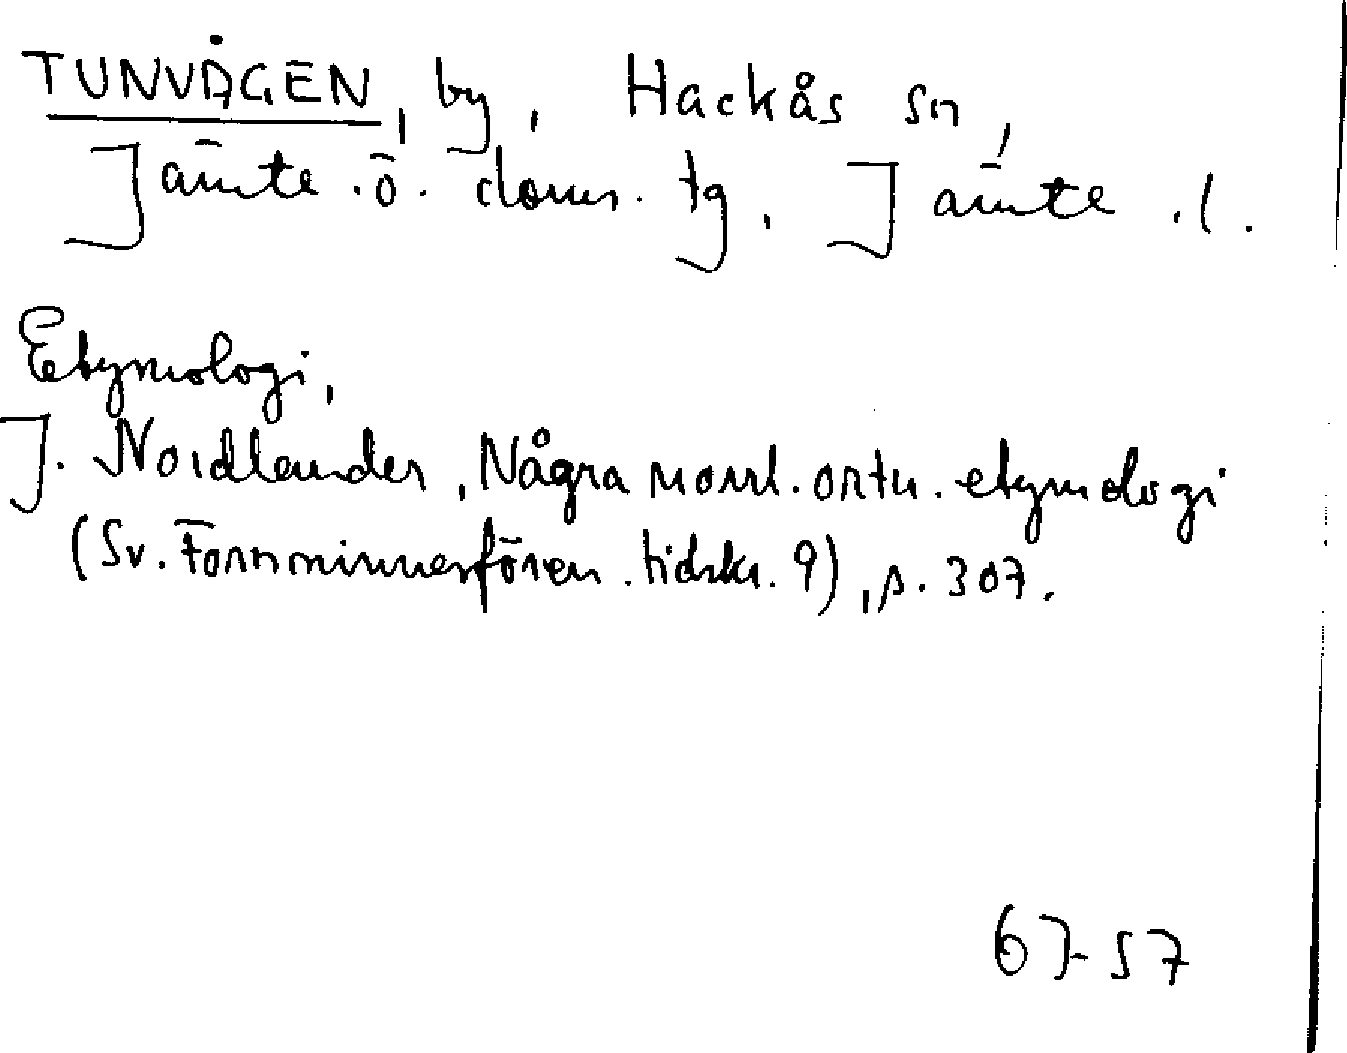 TUNVÅGEN, by, Hackås sn,
Jämte.ö. doms. tg. Jämte.l.
Etymologi,
J. Nordlander, Några norrl. ortn. etymologi
(Sv. Fornminnesfören. tidskr. 9), s. 307.
67-57